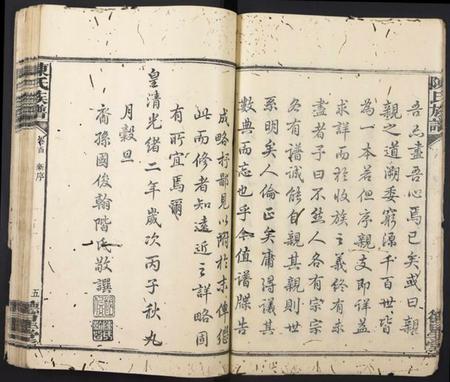 陳氏族譜
吾心盡吾心焉已矣或曰親
親之道溯委窮源千百世皆
為一本若但序親支即詳益
求詳而於收族之義終有未
盡者子曰不然人各有宗宗
各有譜誠能自親其親則世
系明矣人倫正矣庸得議其
數典而忘也乎今值譜牒告
成略抒鄙見以附於末俾繼
此而修者知遠近之詳略固
有所宜焉爾
皇清光緒二年歲次丙子秋九
月穀旦
裔孫國俊翰階氏敬撰
陳氏族譜
卷首 新序
五